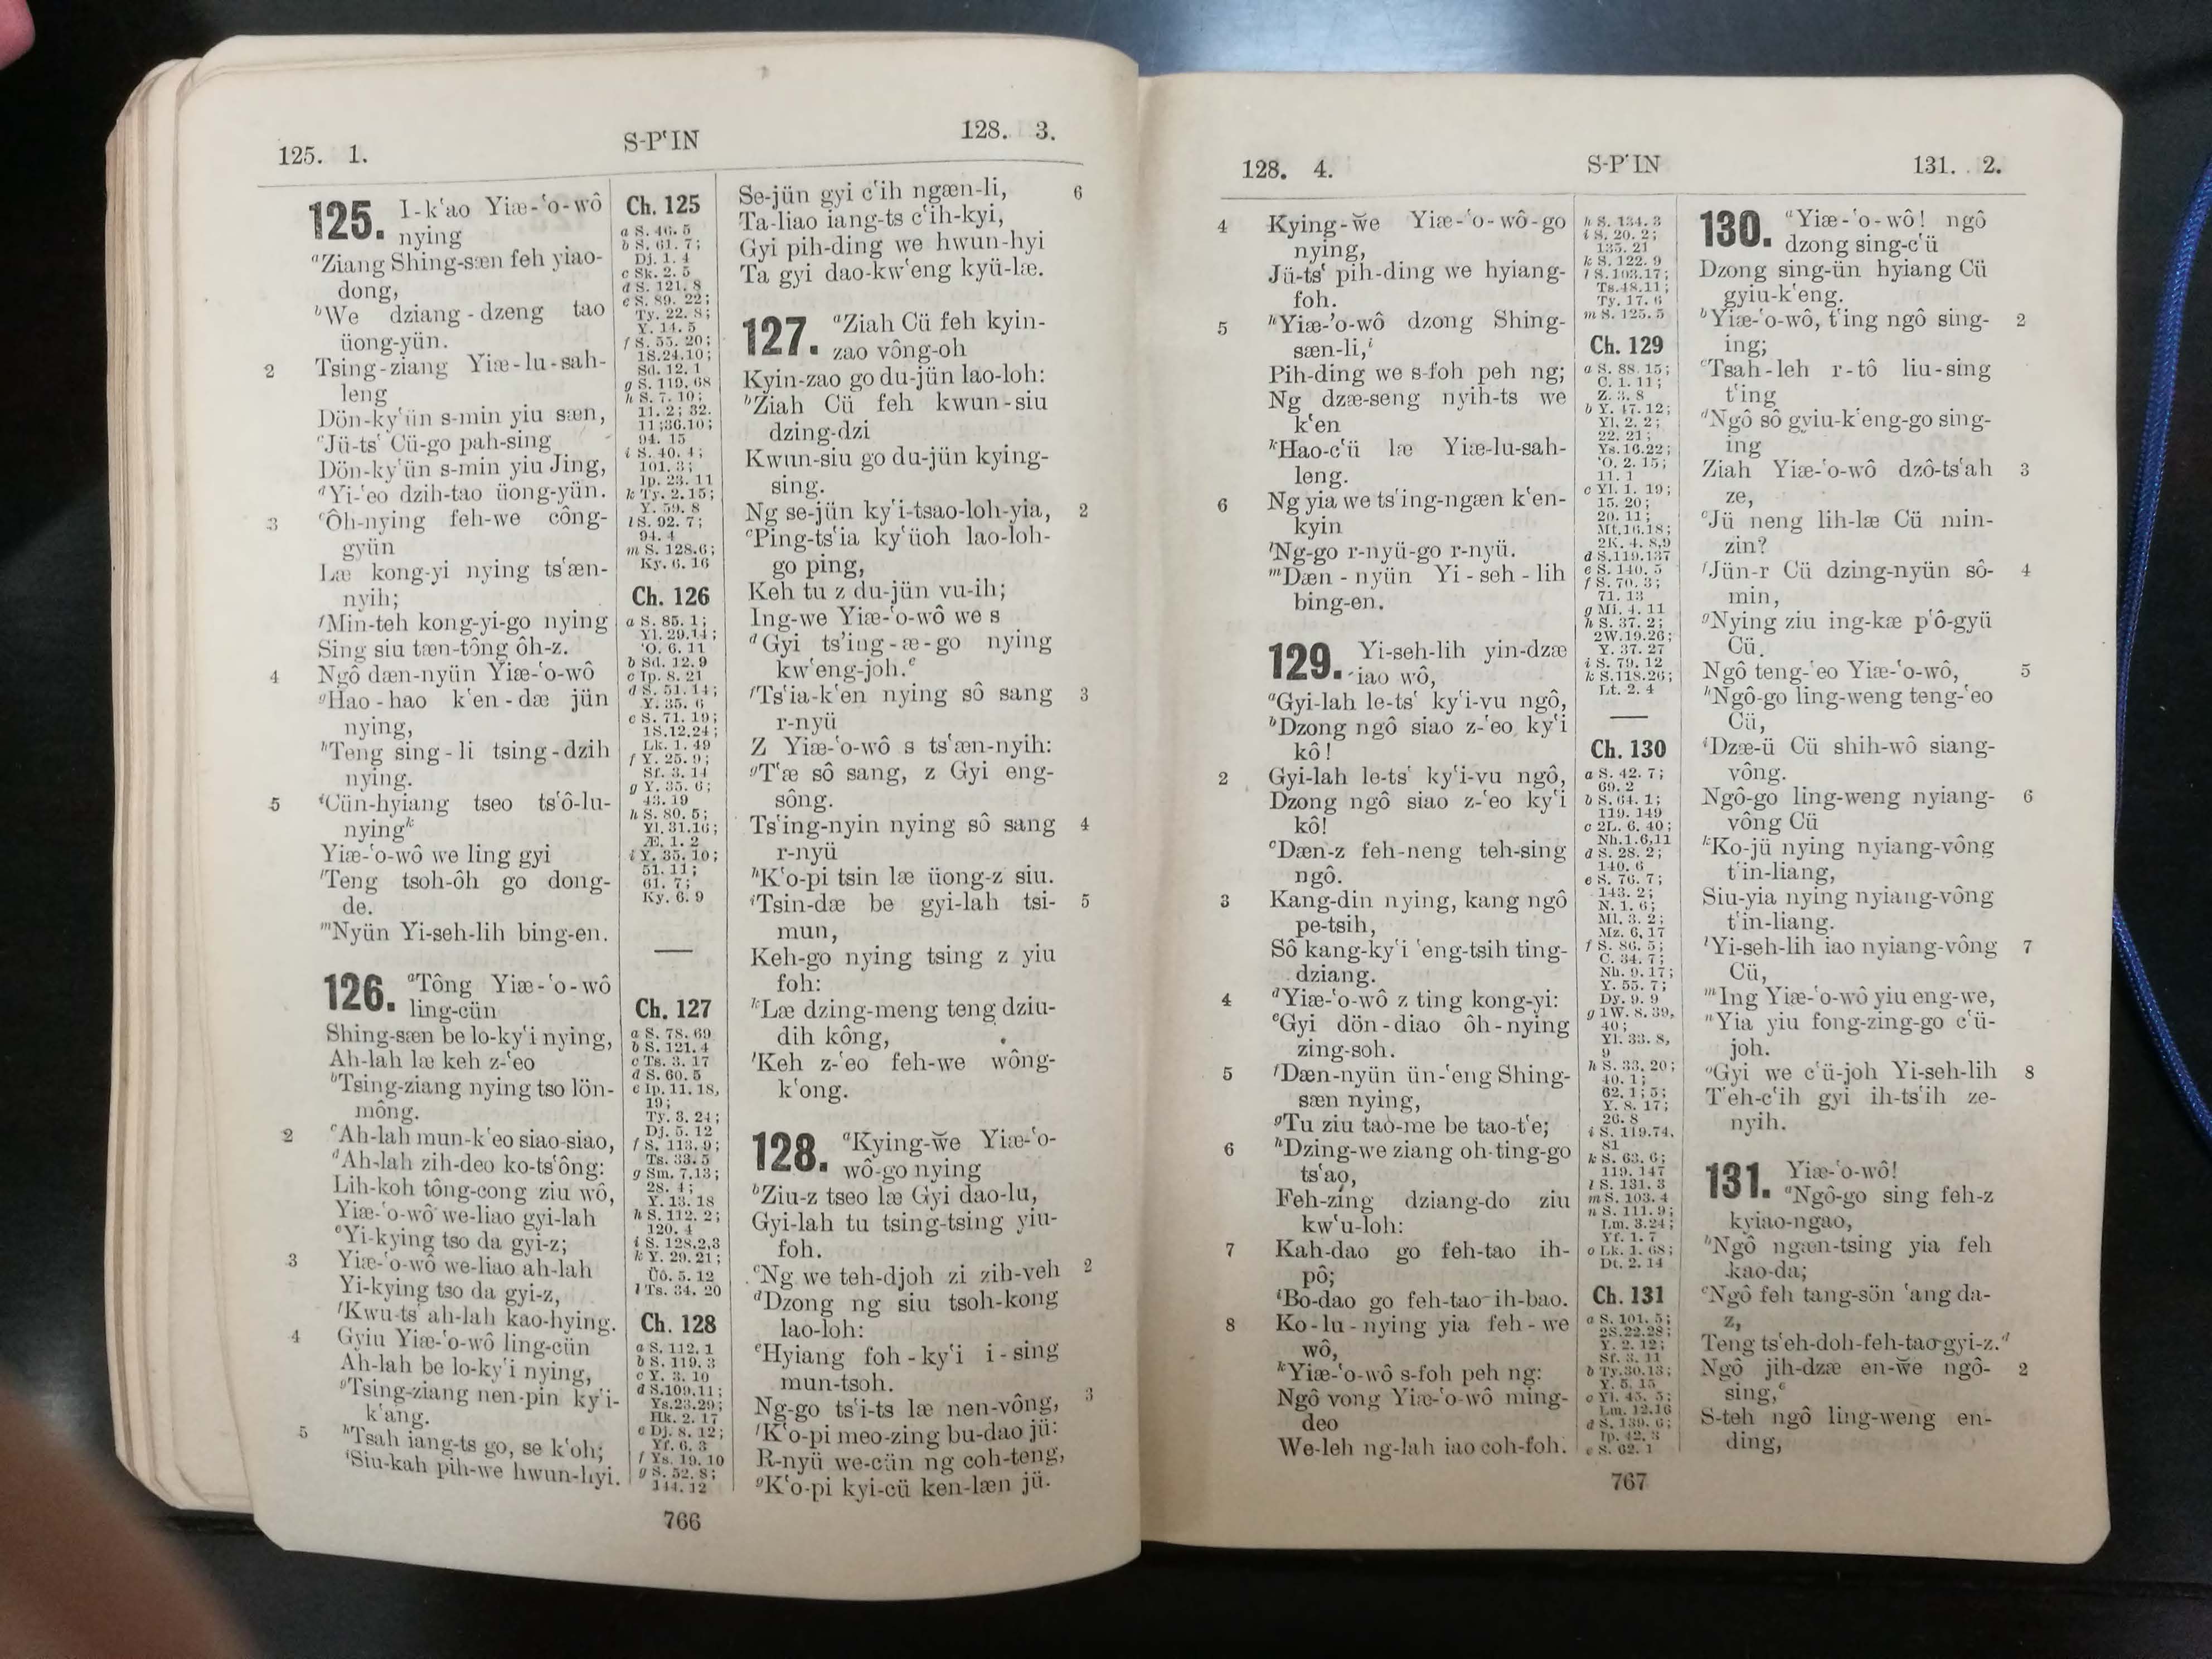 125. 1.
S-PʽIN
128. 3.
125. I-kʽao Yiæ-ʽo-wô
nying
ᵃZiang Shing-sæn feh yiao-
dong,
ᵇWe dziang-dzeng tao
üong-yün.
2 Tsing-ziang Yiæ-lu-sah-
leng
Dön-kyʽün s-min yiu sæn,
ᶜJü-tsʽ Cü-go pah-sing
Dön-kyʽün s-min yiu Jing,
ᵈYi-ʽeo dzih-tao üong-yün.
3 ᵉÔh-nying feh-we công-
gyün
Læ kong-yi nying tsʽæn-
nyih;
ᶠMin-teh kong-yi-go nying
Sing siu tæn-tông ôh-z.
4 Ngô dæn-nyün Yiæ-ʽo-wô
ᵍHao-hao kʽen-dæ jün
nying,
ʰTeng sing-li tsing-dzih
nying.
5 ⁱCün-hyiang tseo tsʽô-lu-
nyingᵏ
Yiæ-ʽo-wô we ling gyi
ˡTeng tsoh-ôh go dong-
de.
ᵐNyün Yi-seh-lih bing-en.
126. ᵃTông Yiæ-ʽo-wô
ling-cün
Shing-sæn be lo-kyʽi nying,
Ah-lah læ keh z-ʽeo
ᵇTsing-ziang nying tso lön-
mông.
2 ᶜAh-lah mun-kʽeo siao-siao,
ᵈAh-lah zih-deo ko-tsʽông:
Lih-koh tông-cong ziu wô,
Yiæ-ʽo-wô we-liao gyi-lah
ᵉYi-kying tso da gyi-z;
3 Yiæ-ʽo-wô we-liao ah-lah
Yi-kying tso da gyi-z,
ᶠKwu-tsʽ ah-lah kao-hying.
4 Gyiu Yiæ-ʽo-wô ling-cün
Ah-lah be lo-kyʽi nying,
ᵍTsing-ziang nen-pin kyʽi-
kʽang.
5 ʰTsah iang-ts go, se kʽoh;
ⁱSiu-kah pih-we hwun-hyi.
Ch. 125
a S. 46. 5
b S. 61. 7;
Dj. 1. 4
c Sk. 2. 5
d S. 121. 8
e S. 89. 22;
Ty. 22. 8;
Y. 14. 5
f S. 55. 20;
1S.24.10;
Sd. 12. 1
g S. 119. 68
h S. 7. 10;
11. 2; 32.
11;36.10;
94. 15
i S. 40. 4;
101. 3;
Ip. 23. 11
k Ty. 2. 15;
Y. 59. 8
l S. 92. 7;
94. 4
m S. 128.6;
Ky. 6. 16
Ch. 126
a S. 85. 1;
Yl. 29.14;
ʽO. 6. 11
b Sd. 12. 9
c Ip. 8. 21
d S. 51. 14;
Y. 35. 6
e S. 71. 19;
1S.12.24;
Lk. 1. 49
f Y. 25. 9;
Sf. 3. 14
g Y. 35. 6;
43. 19
h S. 80. 5;
Yl. 31.16;
Æ. 1. 2
i Y. 35. 10;
51. 11;
61. 7;
Ky. 6. 9
Ch. 127
a S. 78. 69
b S. 121. 4
c Ts. 3. 17
d S. 60. 5
e Ip. 11. 18,
19;
Ty. 3. 24;
Dj. 5. 12
f S. 113. 9;
Ts. 33. 5
g Sm. 7.13;
28. 4;
Y. 13. 18
h S. 112. 2;
120. 4
i S. 128.2,3
k Y. 29. 21;
Üô. 5. 12
l Ts. 34. 20
Ch. 128
a S. 112. 1
b S. 119. 3
c Y. 3. 10
d S.109.11;
Ys.23.29;
Hk. 2. 17
e Dj. 8. 12;
Yf. 6. 3
f Ys. 19. 10
g S. 52. 8;
144. 12
Se-jün gyi cʽih ngæn-li, 6
Ta-liao iang-ts cʽih-kyi,
Gyi pih-ding we hwun-hyi
Ta gyi dao-kwʽeng kyü-læ.
127. ᵃZiah Cü feh kyin-
zao vông-oh
Kyin-zao go du-jün lao-loh:
ᵇZiah Cü feh kwun-siu
dzing-dzi
Kwun-siu go du-jün kying-
sing.
Ng se-jün kyʽi-tsao-loh-yia, 2
ᶜPing-tsʽia kyʽüoh lao-loh-
go ping,
Keh tu z du-jün vu-ih;
Ing-we Yiæ-ʽo-wô we s
ᵈGyi tsʽing-æ-go nying
kwʽeng-joh.ᵉ
ᶠTsʽia-kʽen nying sô sang 3
r-nyü
Z Yiæ-ʽo-wô s tsʽæn-nyih:
ᵍTʽæ sô sang, z Gyi eng-
sông.
Tsʽing-nyin nying sô sang 4
r-nyü
ʰKʽo-pi tsin læ üong-z siu.
ⁱTsin-dæ be gyi-lah tsi- 5
mun,
Keh-go nying tsing z yiu
foh:
ᵏLæ dzing-meng teng dziu-
dih kông,
ˡKeh z-ʽeo feh-we wông-
kʽong.
128. ᵃKying-w̆e Yiæ-ʽo-
wô-go nying
ᵇZiu-z tseo læ Gyi dao-lu,
Gyi-lah tu tsing-tsing yiu-
foh.
ᶜNg we teh-djoh zi zih-veh 2
ᵈDzong ng siu tsoh-kong
lao-loh:
ᵉHyiang foh-kyʽi i-sing
mun-tsoh.
Ng-go tsʽi-ts læ nen-vông, 3
ᶠKʽo-pi meo-zing bu-dao jü:
R-nyü we-cün ng coh-teng,
ᵍKʽo-pi kyi-cü ken-læn jü.
766
128. 4.
S-PʽIN
131. 2.
4 Kying-w̆e Yiæ-ʽo-wô-go
nying,
Jü-tsʽ pih-ding we hyiang-
foh.
5 ʰYiæ-ʽo-wô dzong Shing-
sæn-li,ⁱ
Pih-ding we s-foh peh ng;
Ng dzæ-seng nyih-ts we
kʽen
ᵏHao-cʽü læ Yiæ-lu-sah-
leng.
6 Ng yia we tsʽing-ngæn kʽen-
kyin
ˡNg-go r-nyü-go r-nyü.
ᵐDæn-nyün Yi-seh-lih
bing-en.
129. Yi-seh-lih yin-dzæ
iao wô,
ᵃGyi-lah le-tsʽ kyʽi-vu ngô,
ᵇDzong ngô siao z-ʽeo kyʽi
kô!
2 Gyi-lah le-tsʽ kyʽi-vu ngô,
Dzong ngô siao z-ʽeo kyʽi
kô!
ᶜDæn-z feh-neng teh-sing
ngô.
3 Kang-din nying, kang ngô
pe-tsih,
Sô kang-kyʽi ʽeng-tsih ting-
dziang.
4 ᵈYiæ-ʽo-wô z ting kong-yi:
ᵉGyi dön-diao ôh-nying
zing-soh.
5 ᶠDæn-nyün ün-ʽeng Shing-
sæn nying,
ᵍTu ziu tao-me be tao-tʽe;
6 ʰDzing-we ziang oh-ting-go
tsʽao,
Feh-zing dziang-do ziu
kwʽu-loh:
7 Kah-dao go feh-tao ih-
pô;
ⁱBo-dao go feh-tao ih-bao.
8 Ko-lu-nying yia feh-we
wô,
ᵏYiæ-ʽo-wô s-foh peh ng:
Ngô vong Yiæ-ʽo-wô ming-
deo
We-leh ng-lah iao coh-foh.
h S. 134. 3
i S. 20. 2;
135. 21
k S. 122. 9
l S.103.17;
Ts.48.11;
Ty. 17. 6
m S. 125. 5
Ch. 129
a S. 88. 15;
C. 1. 11;
Z. 3. 8
b Y. 47. 12;
Yl. 2. 2;
22. 21;
Ys.16.22;
ʽO. 2. 15;
11. 1
c Yl. 1. 19;
15. 20;
20. 11;
Mt.16.18;
2K. 4. 8,9
d S.119.137
e S. 140. 5
f S. 70. 3;
71. 13
g Ml. 4. 11
h S. 37. 2;
2W.19.26;
Y. 37. 27
i S. 79. 12
k S.118.26;
Lt. 2. 4
Ch. 130
a S. 42. 7;
69. 2
b S. 64. 1;
119. 149
c 2L. 6. 40;
Nh.1.6,11
d S. 28. 2;
140. 6
e S. 76. 7;
143. 2;
N. 1. 6;
Ml. 3. 2;
Mz. 6. 17
f S. 86. 5;
C. 34. 7;
Nh. 9. 17;
Y. 55. 7;
Dy. 9. 9
g 1W. 8. 39,
40;
Yl. 33. 8,
9
h S. 33. 20;
40. 1;
62. 1; 5;
Y. 8. 17;
26. 8
i S. 119.74,
81
k S. 63. 6;
119. 147
l S. 131. 3
m S. 103. 4
n S. 111. 9;
Lm. 3.24;
Yf. 1. 7
o Lk. 1. 68;
Dt. 2. 14
Ch. 131
a S. 101. 5;
2S.22.28;
Y. 2. 12;
Sf. 3. 11
b Ty.30.13;
Y. 5. 15
c Yl. 45. 5;
Lm. 12.16
d S. 139. 6;
Ip. 42. 3
e S. 62. 1
130. ᵃYiæ-ʽo-wô! ngô
dzong sing-cʽü
Dzong sing-ün hyiang Cü
gyiu-kʽeng.
ᵇYiæ-ʽo-wô, tʽing ngô sing- 2
ing;
ᶜTsah-leh r-tô liu-sing
tʽing
ᵈNgô sô gyiu-kʽeng-go sing-
ing
Ziah Yiæ-ʽo-wô dzô-tsʽah 3
ze,
ᵉJü neng lih-læ Cü min-
zin?
ᶠJün-r Cü dzing-nyün sô- 4
min,
ᵍNying ziu ing-kæ pʽô-gyü
Cü.
Ngô teng-ʽeo Yiæ-ʽo-wô, 5
ʰNgô-go ling-weng teng-ʽeo
Cü,
ⁱDzæ-ü Cü shih-wô siang-
vông.
Ngô-go ling-weng nyiang- 6
vông Cü
ᵏKo-jü nying nyiang-vông
tʽin-liang,
Siu-yia nying nyiang-vông
tʽin-liang.
ˡYi-seh-lih iao nyiang-vông 7
Cü,
ᵐIng Yiæ-ʽo-wô yiu eng-we,
ⁿYia yiu fong-zing-go cʽü-
joh.
ᵒGyi we cʽü-joh Yi-seh-lih 8
Tʽeh-cʽih gyi ih-tsʽih ze-
nyih.
131. Yiæ-ʽo-wô!
ᵃNgô-go sing feh-z
kyiao-ngao,
ᵇNgô ngæn-tsing yia feh
kao-da;
ᶜNgô feh tang-sön ʽang da-
z,
Teng tsʽeh-doh-feh-tao-gyi-z.ᵈ
Ngô jih-dzæ en-w̆e ngô- 2
sing,ᵉ
S-teh ngô ling-weng en-
ding,
767